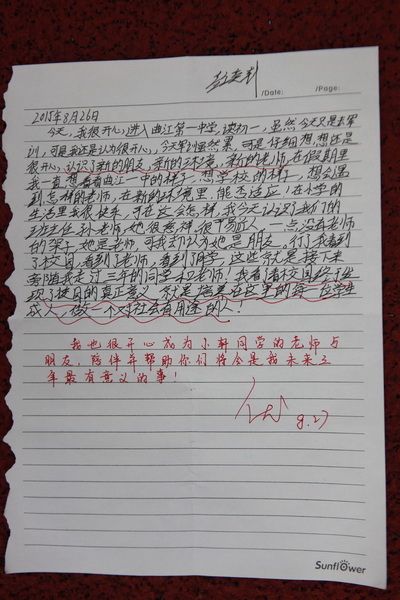 /Date: /Page:
2015年8月26日
今天,我很开心,进入曲江第一中学,读初一,虽然今天只是去军
训,可是我还是认为很开心,今天军训虽然累,可是仔细想想还是
很开心,认识了新的朋友,新的环境,新的老师,在假期里
我一直想看看曲江一中的样子,想学校的样子,想会遇
到怎样的老师,在新的环境里,能否适应!在小学的
生活里我很快乐,可在这会怎样,我今天认识了我们的
班主任孙老师,她很慈祥很平易近人,一点没有老师
的架子,她是老师,可我却认为她是朋友。行了我看到
了校园,看到了老师,看到了同学,这些就是接下来
陪随我走过三年的同学和老师!我看着校园终于
我也很开心成为小轩同学的老师与
朋友,陪伴并帮助你们将会是我未来三
年最有意义的事!
8.27
Sunflower